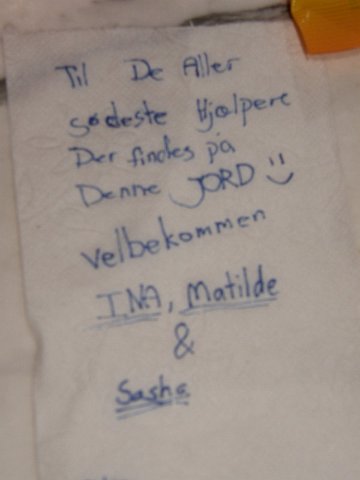 Til De Aller
sødeste Hjælpere
Der findes på
Denne JORD :)
velbekommen
INA, Matilde
&
Sasha